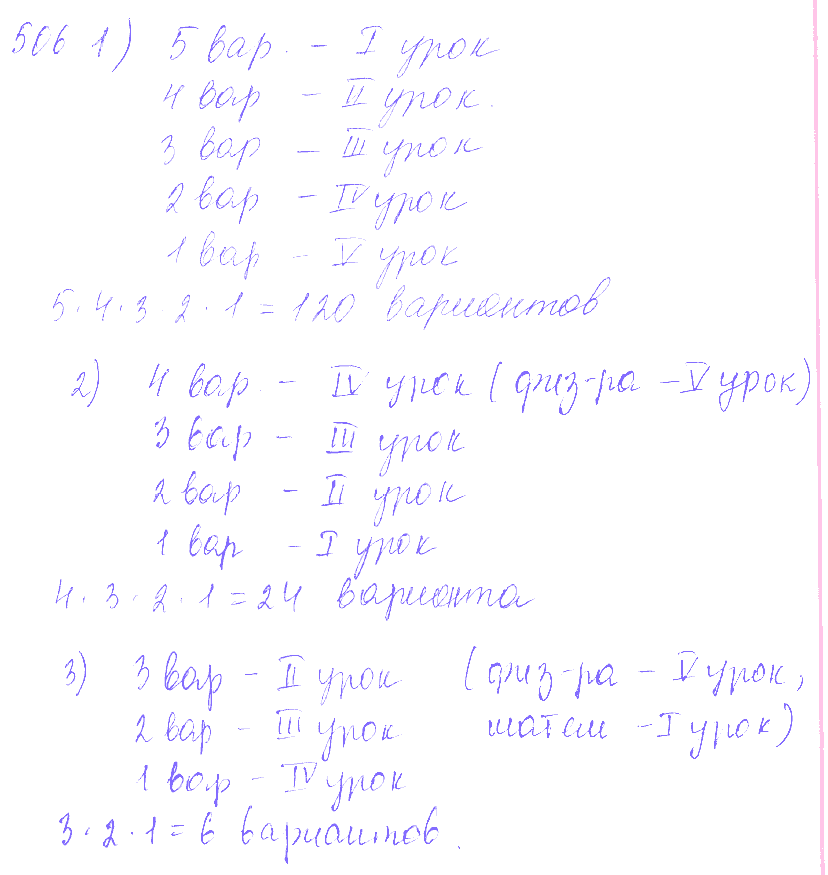 506 1) 5 вар. - I урок
4 вар - II урок.
3 вар - III урок
2 вар - IV урок
1 вар - V урок
5·4·3·2·1=120 вариантов
2) 4 вар. - IV урок (физ-ра - V урок)
3 вар - III урок
2 вар - II урок
1 вар - I урок
4·3·2·1=24 варианта
3) 3 вар - II урок (физ-ра - V урок,
2 вар - III урок матем - I урок)
1 вар - IV урок
3·2·1=6 вариантов.